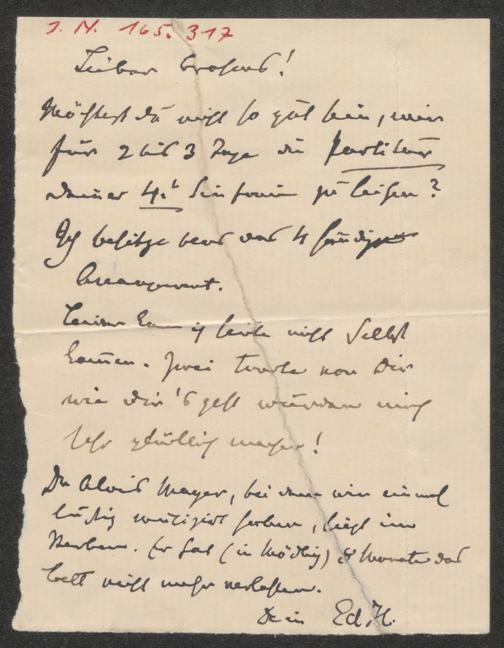 I. N. 165.317
Lieber Brahms!
Möchtest du nicht so gut sein, mir
für 2 bis 3 Tage die Partitur
deiner 4.t Sinfonie zu leihen?
Ich besitze blos das 4 händige
Arrangement.
Leider kann ich heute nicht selbst
kommen. Zwei Worte von Dir
wie dir's geht würden mich
sehr glücklich machen!
Der Alois Mayer, bei dem wir einmal
lustig musizirt haben, liegt im
Sterben. Er hat (in Mödling) 8 Monate das
Bett nicht mehr verlassen.
Dein Ed. H.